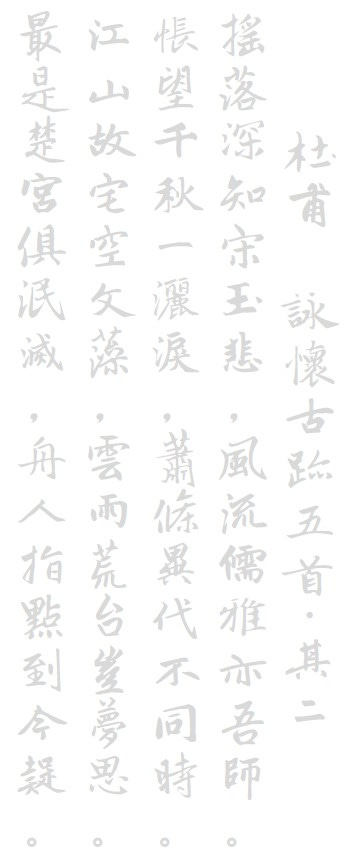 杜甫 詠懷古跡五首·其二
搖落深知宋玉悲，風流儒雅亦吾師。
悵望千秋一灑淚，蕭條異代不同時。
江山故宅空文藻，雲雨荒台豈夢思
最是楚宮俱泯滅，舟人指點到今疑。